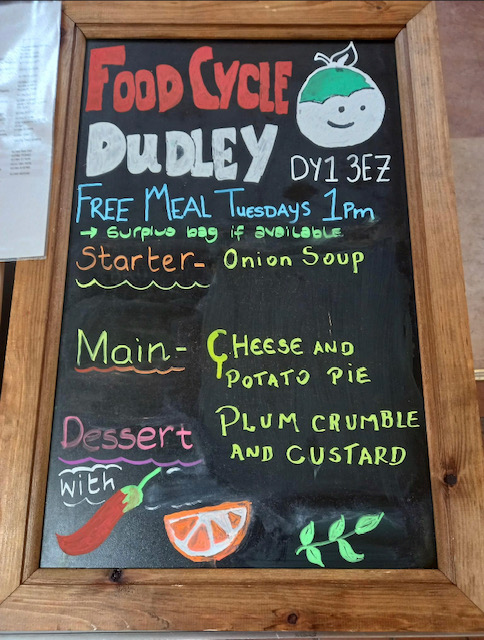 FOOD CYCLE
DUDLEY DY1 3EZ
FREE MEAL TUESDAYS 1Pm
→ Surplus bag if available
Starter- Onion Soup
Main- CHEESE AND
POTATO PIE
Dessert PLUM CRUMBLE
AND CUSTARD
with